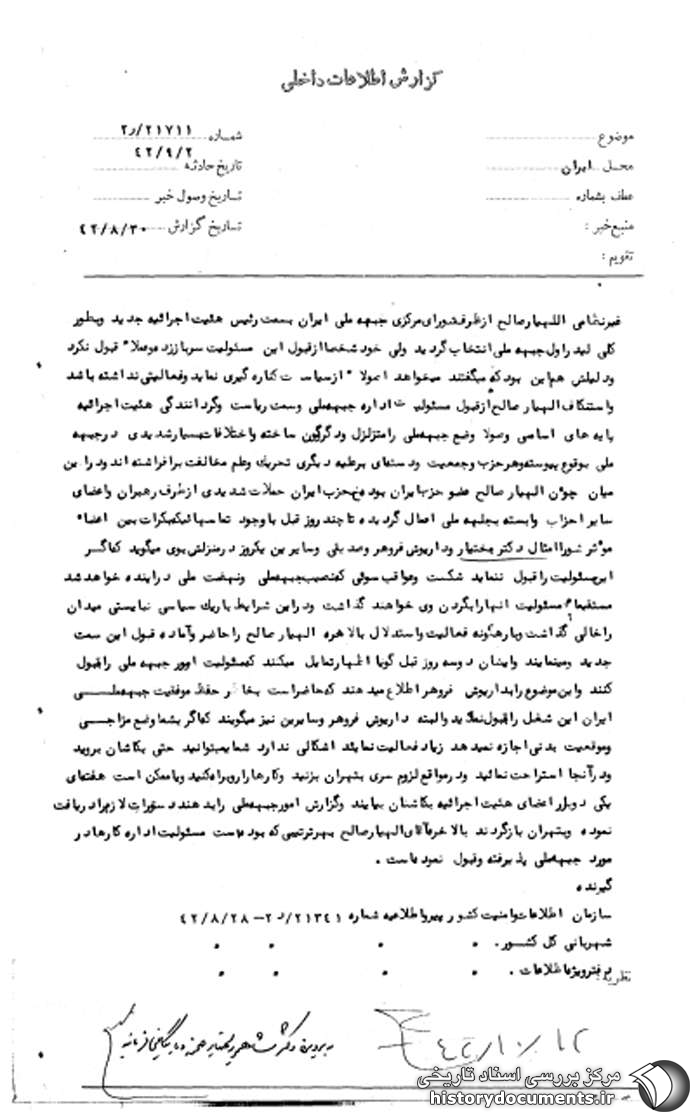 گزارش اطلاعات داخلی
موضوع
شماره ۲۱۷۱۱/ر۲
محل ایران
۴۲/۹/۲
تاریخ حادثه
عطف بشماره
تاریخ وصول خبر
منبع خبر :
تاریخ گزارش ۴۲/۸/۳۰
تقویم :
غیرنظامی اللهیار صالح ازطرف شورای مرکزی جبهه ملی ایران بسمت رئیس هئیت اجرائیه جدید وبطور
کلی لیدر اول جبهه ملی انتخاب گردید ولی خود شخصا ازقبول این مسئولیت سرباززد وعملا قبول نکرد
ودلیلش هم این بود که میگفتند میخواهد اصولا ازسیاست کناره گیری نماید وفعالیتی نداشته باشد
واستنکاف الهیار صالح ازقبول مسئولیت اداره جبهه ملی وسمت ریاست وگردانندگی هئیت اجرائیه
پایه های اساسی وصولا وضع جبهه ملی رامتزلزل ودگرگون ساخته واختلافات بسیار شدیدی درجبهه
ملی بوقوع پیوسته وهر حزب وجمعیت ودسته ای برعلیه دیگری تحریک وعلم مخالفت برافراشته اند ودر این
میان چون الهیار صالح عضو حزب ایران بوده حزب ایران حملات شدیدی ازطرف رهبران واعضای
سایر احزاب وابسته بجبهه ملی اعمال گردیده تا چند روز قبل با وجود تماسهائیکه بکرات بین اعضاء
موثر شورا امثال دکتر بختیار وداریوش فروهر وصدیقی وسایرین یکروز درمنزلش بوی میگوید که اگر
این مسئولیت را قبول ننماید شکست وعواقب سوئی که نصیب جبهه ملی ونهضت ملی در اینده خواهد شد
مستقیما مسئولیت انها را بگردن وی خواهند گذاشت ودر این شرایط باریک سیاسی نبایستی میدان
را خالی گذاشت وبا هرگونه فعالیت واستدلال بالاخره الهیار صالح را حاضر وآماده قبول این سمت
جدید ومینمایند وایشان دوسه روز قبل گویا اظهار تمایل میکنند که مسئولیت امور جبهه ملی را قبول
کنند واین موضوع را بداریوش فروهر اطلاع میدهند که حاضر است بخاطر حفظ موفقیت جبهه ملی
ایران این شغل را قبول نماید والبته داریوش فروهر وسایرین نیز میگویند که اگر بشما وضع مزاجی
وموقعیت بدنی اجازه نمیدهد زیاد فعالیت نمائید اشکالی ندارد شما میتوانید حتی بکاشان بروید
ودر آنجا استراحت نمائید ودر مواقع لزوم سری بتهران بزنید وکارها را روبراه کنید ویا ممکن است هفته ای
یکی دوبار اعضای هئیت اجرائیه بکاشان بیایند وگزارش امور جبهه ملی را بدهند دستورات لازم را دریافت
نموده وبتهران بازگردند بالاخره آقای الهیار صالح بهر ترتیبی که بوده است مسئولیت اداره کارها در
مورد جبهه ملی پذیرفته وقبول نموده است .
گیرنده
سازمان اطلاعات وامنیت کشور پیرو اطلاعیه شماره ۲۱۳۴۱/ر۲ – ۴۲/۸/۲۸
شهربانی کل کشور .
دفتر ویژه اطلاعات .
نظریه
۴۲/۱۰/۱۲
مرکز بررسی اسناد تاریخی
historydocuments.ir